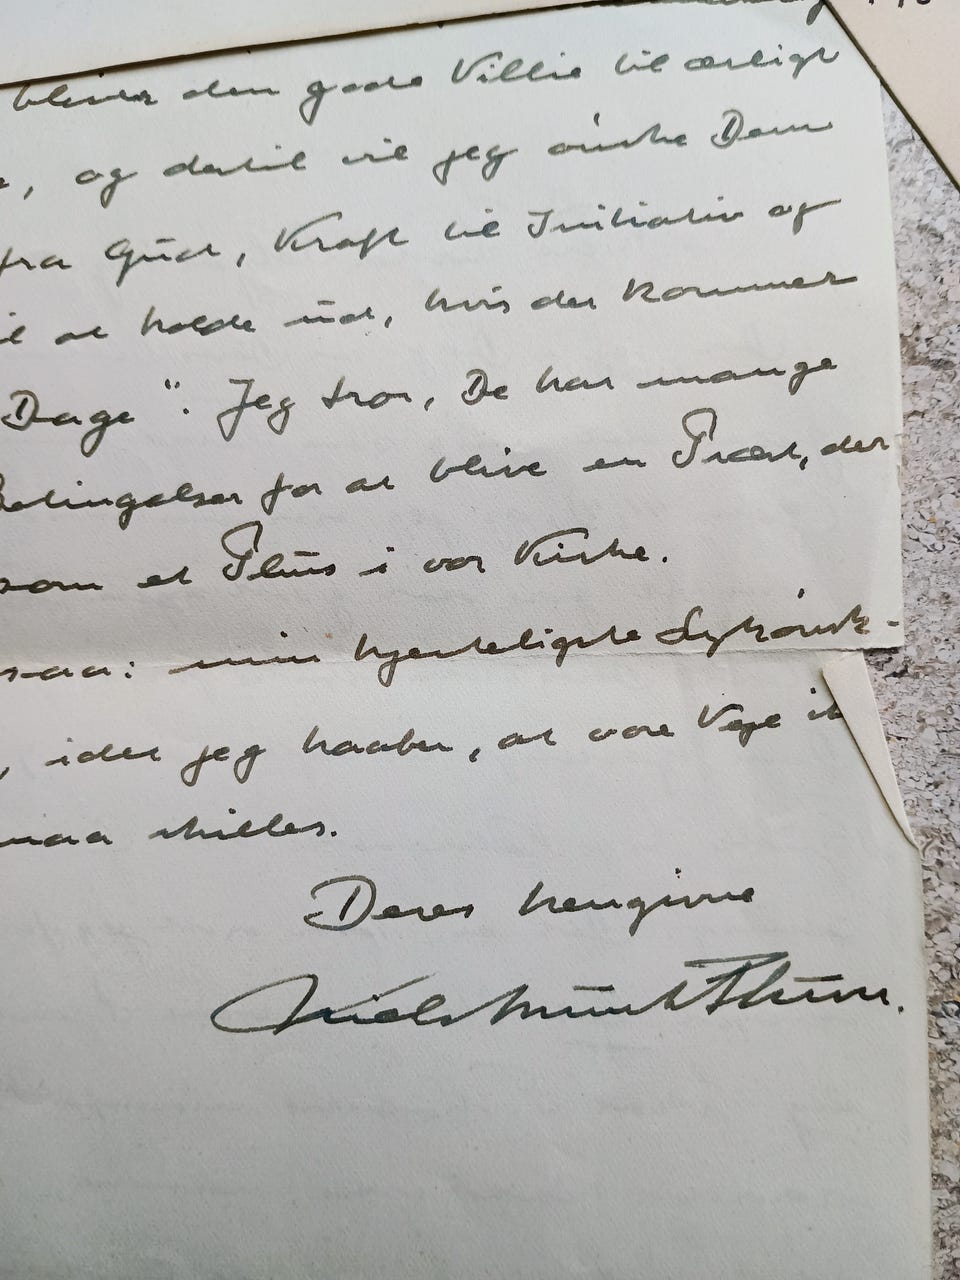 bliver den gode Villie til ærligt
, og dertil vil jeg ønske Dem
fra Gud, Kraft til Initiativ og
til at holde ud, hvis der kommer
Dage". Jeg tror, De har mange
Betingelser for at blive en Præst, der
som et Plus i vor Kirke.
saa: min hjerteligste Lykønsk-
, idet jeg haaber, at vore Veje ik
maa skilles.
Deres hengivne
Niels Munk Plum.